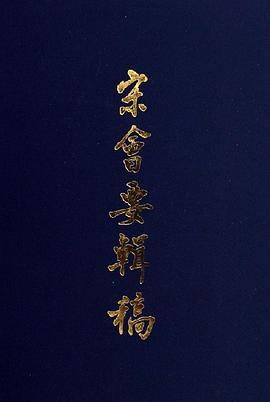 宋會要輯稿